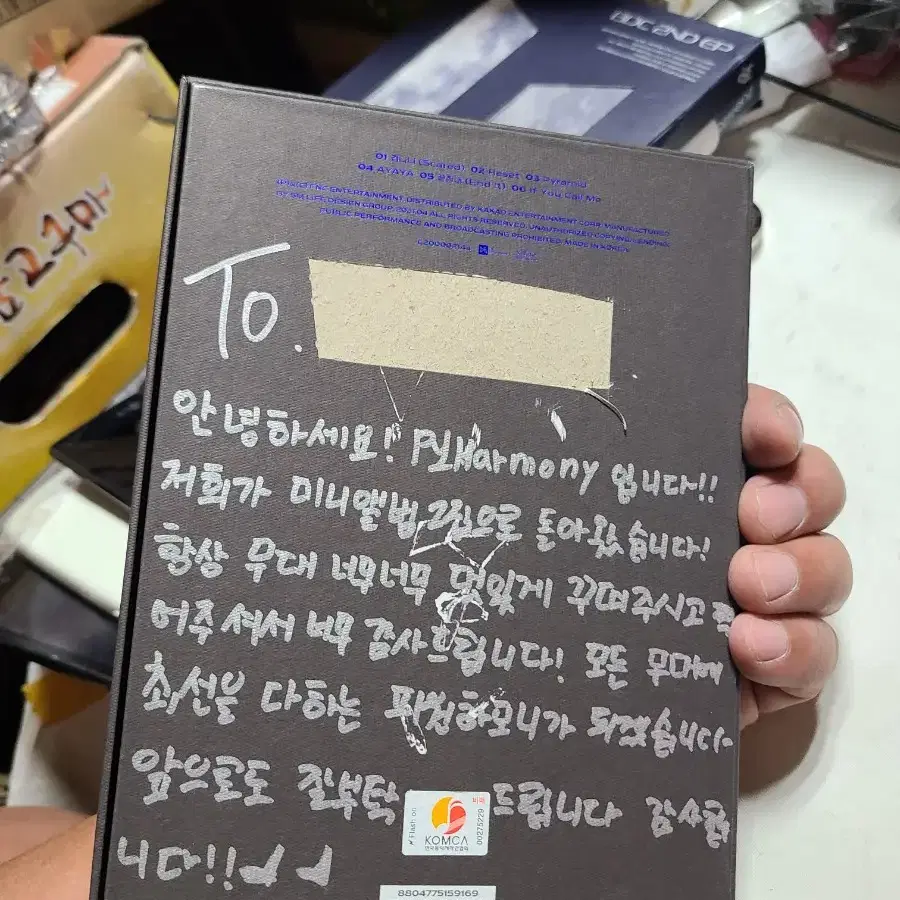 BDC 2ND EP
고구마
01 겁나니 (Scared) 02 Reset 03 Pyramid
04 AYAYA 05 끝장내 (End It) 06 If You Call Me
ENTERTAINMENT DISTRIBUTED BY KAKAO ENTERTAINMENT CORP. MANUFACTURED
ALL RIGHTS RESERVED. UNAUTHORIZED COPYING, LENDING,
PUBLIC PERFORMANCE AND BROADCASTING PROHIBITED. MADE IN KOREA
To.
안녕하세요! P1Harmony 입니다!!
저희가 미니앨범 2집으로 돌아왔습니다!
항상 무대 너무너무 멋있게 꾸며주시고
어주셔서 너무 감사드립니다! 모든 무대에
최선을 다하는 피원하모니가 되겠습니다
앞으로도 잘부탁 드립니다 감사합
니다!!
Flash on
KOMCA
한국음악저작권협회
비매
00275229
8804775159169